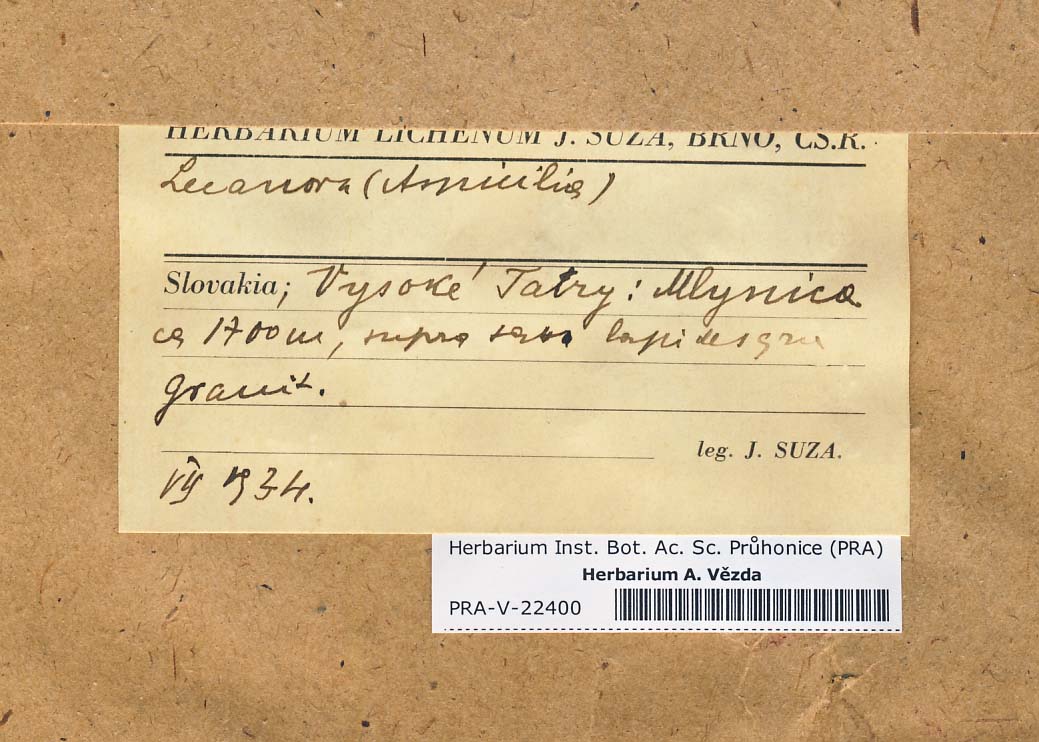 HERBARIUM LICHENUM J. SUZA, BRNO, ČS.R.
Lecanora (Aspicilia)
Slovakia; Vysoké Tatry: Mlynica
ca 1700 m, supra saxa lapides
granit.
leg. J. SUZA.
VII 1934.
Herbarium Inst. Bot. Ac. Sc. Průhonice (PRA)
Herbarium A. Vězda
PRA-V-22400